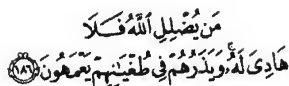 مَن يُضْلِلِ ٱللَّهُ فَلَا
هَادِىَ لَهُۥ ۚ وَيَذَرُهُمْ فِى طُغْيَـٰنِهِمْ يَعْمَهُونَ ﴿١٨٦﴾